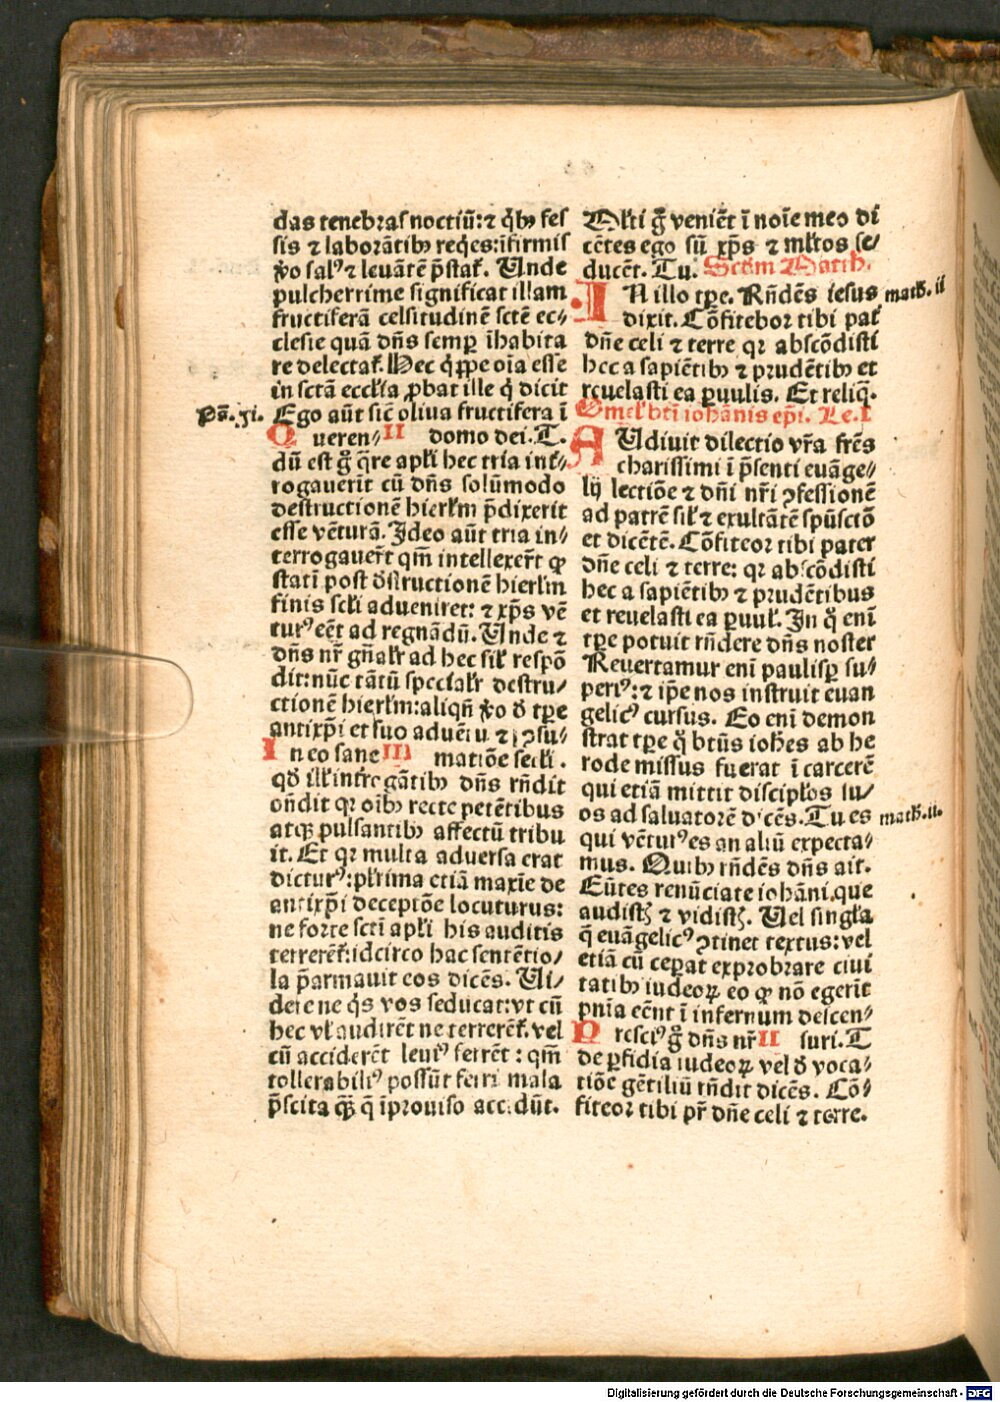 das tenebras noctiū: ⁊ q̄bꝫ fes
sis ⁊ laborātibꝫ req̇es: īfirmis
ꝟo salꝰ ⁊ leuātē p̄stat̄. Unde
pulcherrime significat illam
fructiferā celsitudinē sctē ec⸗
clesie quā dn̄s semꝑ īhabita
re delectat̄. Nec q̇ꝑpe oīa esse
in sctā eccl̄ia ꝓbat ille q̇ dicit
Ps̄. .ꝫi.
Ego aūt sic̄ oliua fructifera ī
Queren⸗ II domo dei. T.
dū est g̊ q̄re apl̄i hec tria int̄⸗
rogauerīt cū dn̄s solūmodo
destructionē hierl̄m p̄dixerit
esse vēturā. Ideo aūt tria in⸗
terrogauer̄t qm̄ intellexer̄t ꝙ
statī post ꝺstructionē hierl̄m
finis scl̄i adueniret: ⁊ xp̄s vē
turꝰ eēt ad regnādū. Unde ⁊
dn̄s nr̄ gn̄alr̄ ad hec sil̄ respō
dit: nūc tātū specialr̄ destru⸗
ctionē hierl̄m: aliqn̄ ꝟo ꝺ tꝑe
antixp̄i et suo aduētu ⁊ ꝯsu⸗
In eo sane III matiōe secl̄i.
qꝺ ill̄ intrꝛogātibꝫ dn̄s rn̄dit
on̄dit qꝛ oībꝫ recte petētibus
atqꝫ pulsantibꝫ affectū tribu
it. Et qꝛ multa aduersa erat
dicturꝰ: pl̄rima etiā maxīe de
antixp̄i deceptōe locuturus:
ne forte sctī apl̄i his auditis
terrerēt̄: idcirco hac sentētio⸗
la p̄armauit eos dicēs. Ui⸗
dete ne q̇s vos seducat: vt cū
hec vl̄ audirēt ne terrerēt̄. vel
cū acciderēt leuiꝰ ferrēt: qm̄
tollerabiliꝰ possūt ferri mala
p̄scita qꝫ q̄ īprouiso accidūt.
Ml̄ti g̊ veniēt ī noīe meo di
cētes ego sū xp̄s ⁊ ml̄tos se⸗
ducēt. Tu. Scd̄m Matth.
IN illo tꝑe. Rn̄dēs iesus
math̄. ii
dixit. Cōfitebor tibi pat̄
dn̄e celi ⁊ terre qꝛ abscōdisti
hec a sapiētibꝫ ⁊ prudētibꝫ et
reuelasti ea ꝑuulis. Et reliq̄.
Omel̄ btī iohānis ep̄i. Le. I
AUdiuit dilectio vr̄a frēs
charissimi ī p̄senti euāge⸗
lij lectiōe ⁊ dn̄i nr̄i ꝯfessionē
ad patrē sil̄ ⁊ exultātē spūsctō
et dicētē. Cōfiteor tibi pater
dn̄e celi ⁊ terre: qꝛ abscōdisti
hec a sapiētibꝫ ⁊ prudētibus
et reuelasti ea ꝑuul̄. In q̊ enī
tꝑe potuit rn̄dere dn̄s noster
Reuertamur enī paulisꝑ su⸗
periꝰ: ⁊ ip̄e nos instruit euan
gelicꝰ cursus. Eo enī demon
strat tꝑe q̊ btūs ioh̄es ab he
rode missus fuerat ī carcerē
qui etiā mittit discipl̄os su⸗
os ad saluatorē dicēs. Tu es
math̄. ii.
qui vēturꝰ es an aliū expecta⸗
mus. Quibꝫ rn̄dēs dn̄s ait.
Eūtes renūciate iohāni. que
audistꝭ ⁊ vidistꝭ. Uel singl̄a
q̄ euāgelicꝰ ꝯtinet textus: vel
etiā cū ceꝑat exprobrare ciui
tatibꝫ iudeoꝝ eo ꝙ nō egerīt
pn̄ia eēnt ī infernum descen⸗
Presciꝰ g̊ dn̄s nr̄ II suri. T
de ꝑfidia iudeoꝝ vel ꝺ voca⸗
tiōe gētiliū rn̄dit dicēs. Cō⸗
fiteor tibi pr̄ dn̄e celi ⁊ terre.
Digitalisierung gefördert durch die Deutsche Forschungsgemeinschaft - DFG